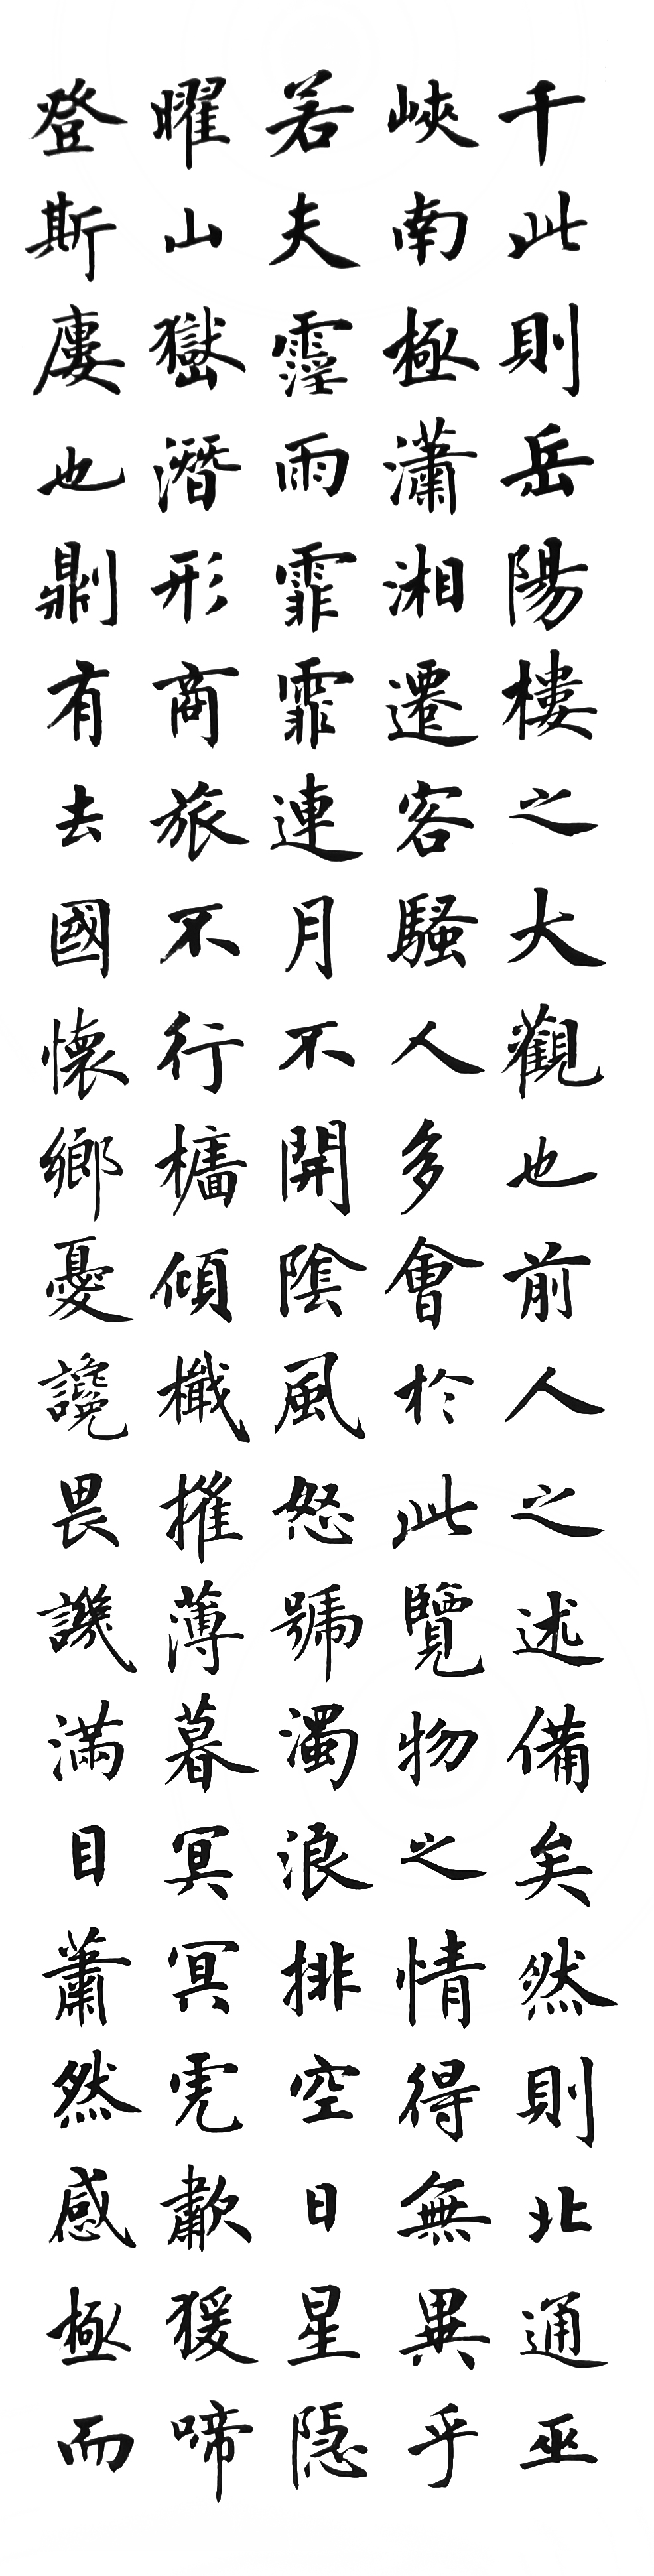 千此則岳陽樓之大觀也前人之述備矣然則北通巫
峽南極瀟湘遷客騷人多會扵此覽物之情得無異乎
若夫霪雨霏霏連月不開隂風怒號濁浪排空日星隱
曜山嶽潛形商旅不行檣傾檝摧薄暮冥冥虎歗猨啼
登斯廔也𠟭有去國懷鄉憂讒畏譏滿目蕭然感極而